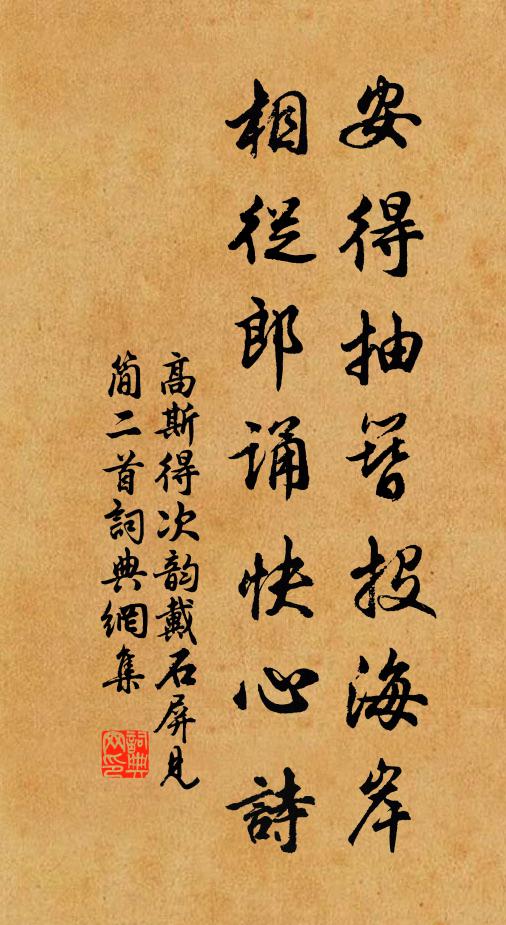 安得抽簪投海岸
相從郎誦快心詩
高斯得次韵戴石屏見
简二首詞典網集
詞典網印